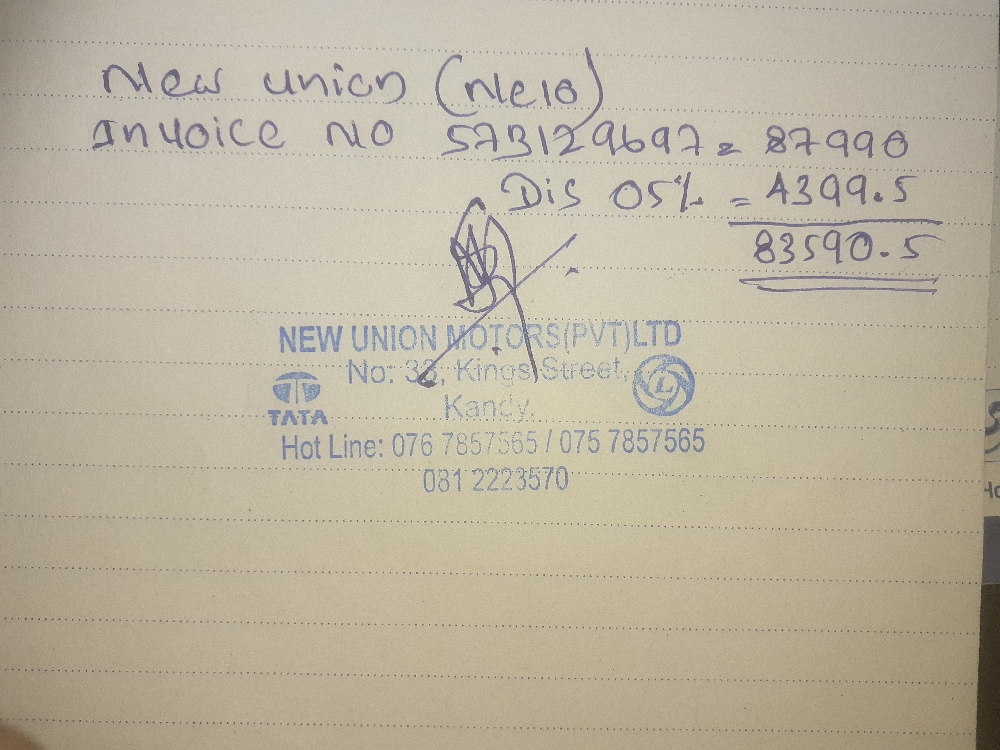 New Union (Ne10)
Invoice No 573129697 = 87990
Dis 05% = 4399.5
83590.5
NEW UNION MOTORS(PVT)LTD
No: 33, Kings Street,
Kandy.
TATA
L
Hot Line: 076 7857565 / 075 7857565
081 2223570